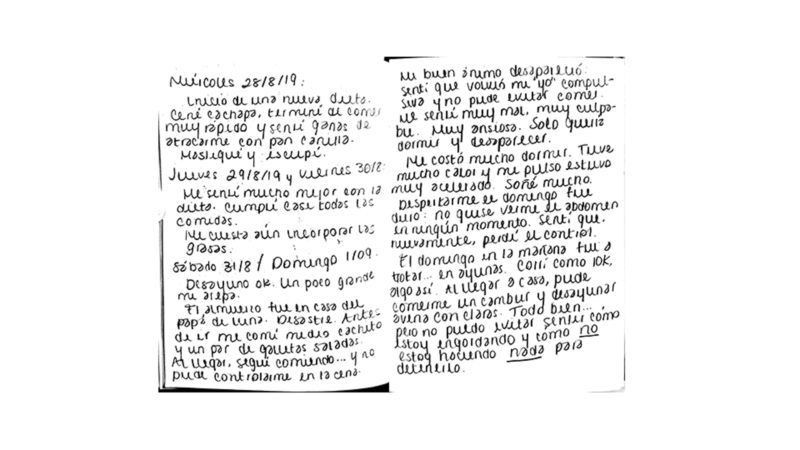 Miércoles 28/8/19:
Inicio de una nueva dieta.
Cené cachapa, terminé de comer
muy rápido y sentí ganas de
atracarme con pan canilla.
Mastiqué y escupí.
Jueves 29/8/19 y viernes 30/8:
Me sentí mucho mejor con la
dieta. Cumplí casi todas las
comidas.
Me cuesta aún incorporar las
grasas.
Sábado 31/8 / Domingo 1/09.
Desayuno ok. Un poco grande
mi arepa.
El almuerzo fue en casa del
papá de Luna. Desastre. Antes
de ir me comí medio cachito
y un par de galletas saladas.
Al llegar, seguí comiendo... y no
pude controlarme en la cena.
Mi buen ánimo desapareció.
Sentí que volvió mi "yo" compul-
siva y no pude evitar comer.
Me sentí muy mal, muy culpa-
ble. Muy ansiosa. Solo quería
dormir y desaparecer.
Me costó mucho dormir. Tuve
mucho calor y mi pulso estuvo
muy acelerado. Soñé mucho.
Despertarme el domingo fue
duro: no quise verme el abdomen
en ningún momento. Sentí que,
nuevamente, perdí el control.
El domingo en la mañana fui a
trotar... en ayunas. Corrí como 10K,
algo así. Al llegar a casa, pude
comerme un cambur y desayunar
avena con claras. Todo bien...
pero no puedo evitar sentir cómo
estoy engordando y como no
estoy haciendo nada para
detenerlo.